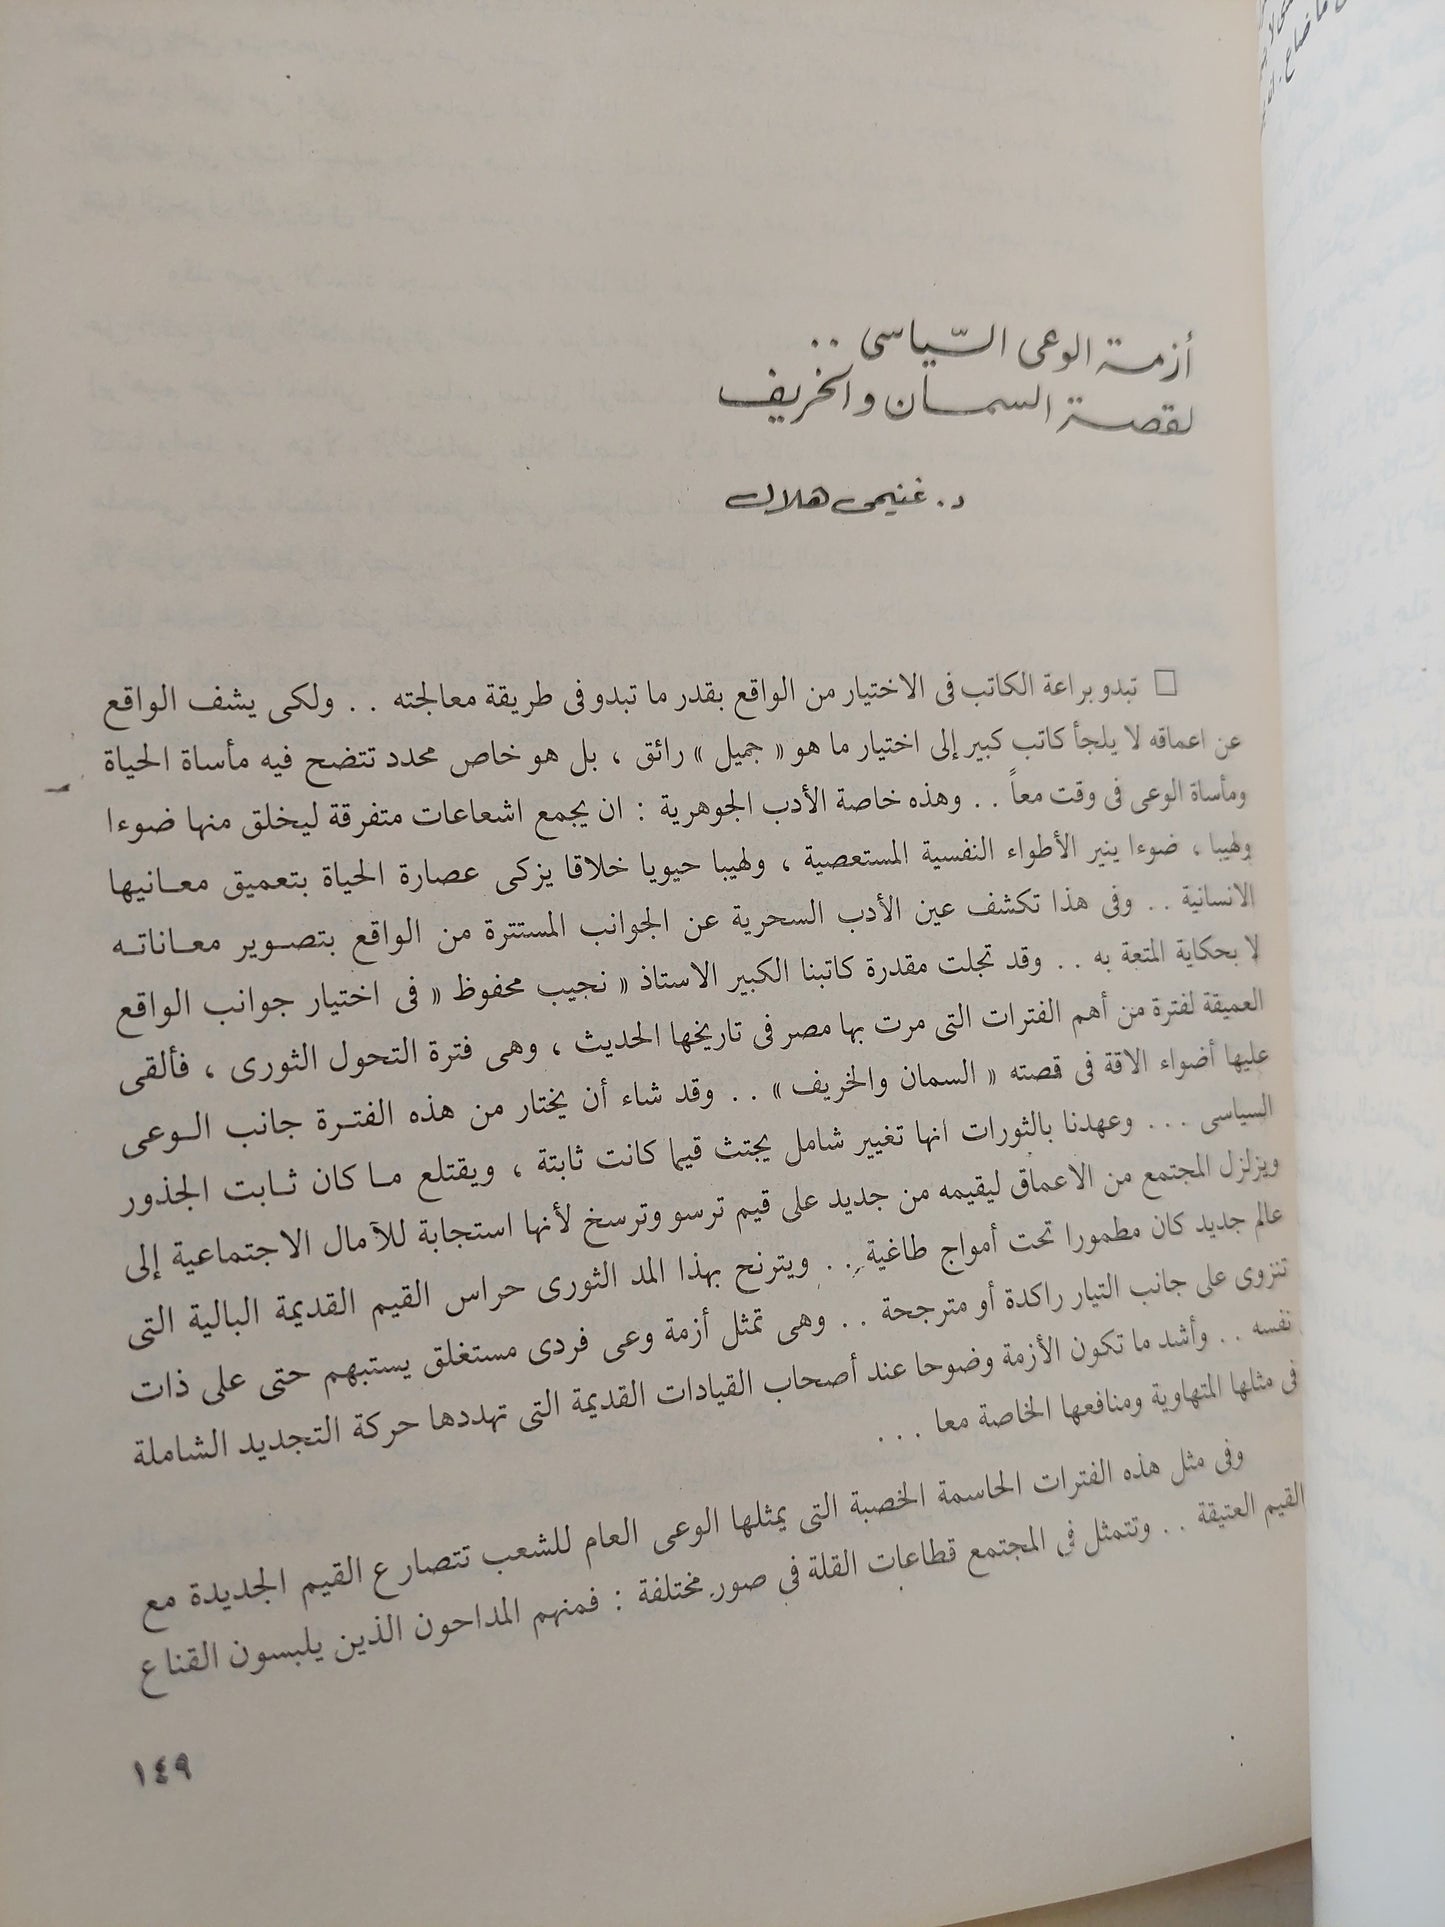 أزمة الوعى السّياسى ..
لقصة السمان والخريف
د. غنيمى هلال
□ تبدو براعة الكاتب فى الاختيار من الواقع بقدر ما تبدو فى طريقة معالجته . . ولكى يشف الواقع
عن اعماقه لا يلجأ كاتب كبير إلى اختيار ما هو « جميل » رائق ، بل هو خاص محدد تتضح فيه مأساة الحياة
ومأساة الوعى فى وقت معاً . . وهذه خاصة الأدب الجوهرية : ان يجمع اشعاعات متفرقة ليخلق منها ضوءا
ولهيبا ، ضوءا ينير الأطواء النفسية المستعصية ، ولهيبا حيويا خلاقا يزكى عصارة الحياة بتعميق معانيها
الانسانية . . وفى هذا تكشف عين الأدب السحرية عن الجوانب المستترة من الواقع بتصوير معاناته
لا بحكاية المتعة به . . وقد تجلت مقدرة كاتبنا الكبير الاستاذ « نجيب محفوظ « فى اختيار جوانب الواقع
العميقة لفترة من أهم الفترات التى مرت بها مصر فى تاريخها الحديث ، وهى فترة التحول الثورى ، فألقى
عليها أضواء الاقة فى قصته « السمان والخريف » . . وقد شاء أن يختار من هذه الفترة جانب الوعى
السياسى . . . وعهدنا بالثورات انها تغيير شامل يجتث قيما كانت ثابتة ، ويقتلع ما كان ثابت الجذور
ويزلزل المجتمع من الاعماق ليقيمه من جديد على قيم ترسو وترسخ لأنها استجابة للآمال الاجتماعية إلى
عالم جديد كان مطمورا تحت أمواج طاغية . . ويترنح بهذا المد الثورى حراس القيم القديمة البالية التى
تنزوى على جانب التيار راكدة أو مترجحة . . وهى تمثل أزمة وعى فردى مستغلق يستبهم حتى على ذات
نفسه . . وأشد ما تكون الأزمة وضوحا عند أصحاب القيادات القديمة التى تهددها حركة التجديد الشاملة
فى مثلها المتهاوية ومنافعها الخاصة معا . . .
وفى مثل هذه الفترات الحاسمة الخصبة التى يمثلها الوعى العام للشعب تتصارع القيم الجديدة مع
القيم العتيقة . . وتتمثل فى المجتمع قطاعات القلة فى صور مختلفة : فمنهم المداحون الذين يلبسون القناع
١٤٩